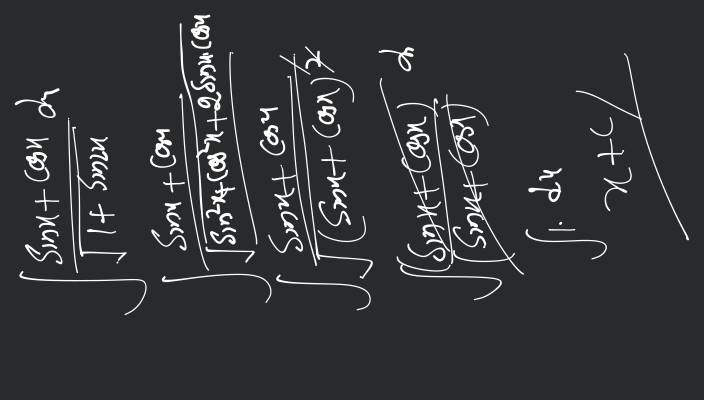 ∫ (sinx + cosx) / √(1 + sin2x) dx
∫ (sinx + cosx) / √(sin²x + cos²x + 2sinx.cosx)
∫ (sinx + cosx) / √(sinx + cosx)²
∫ (sinx + cosx) / (sinx + cosx) dx
∫ 1. dx
x + c